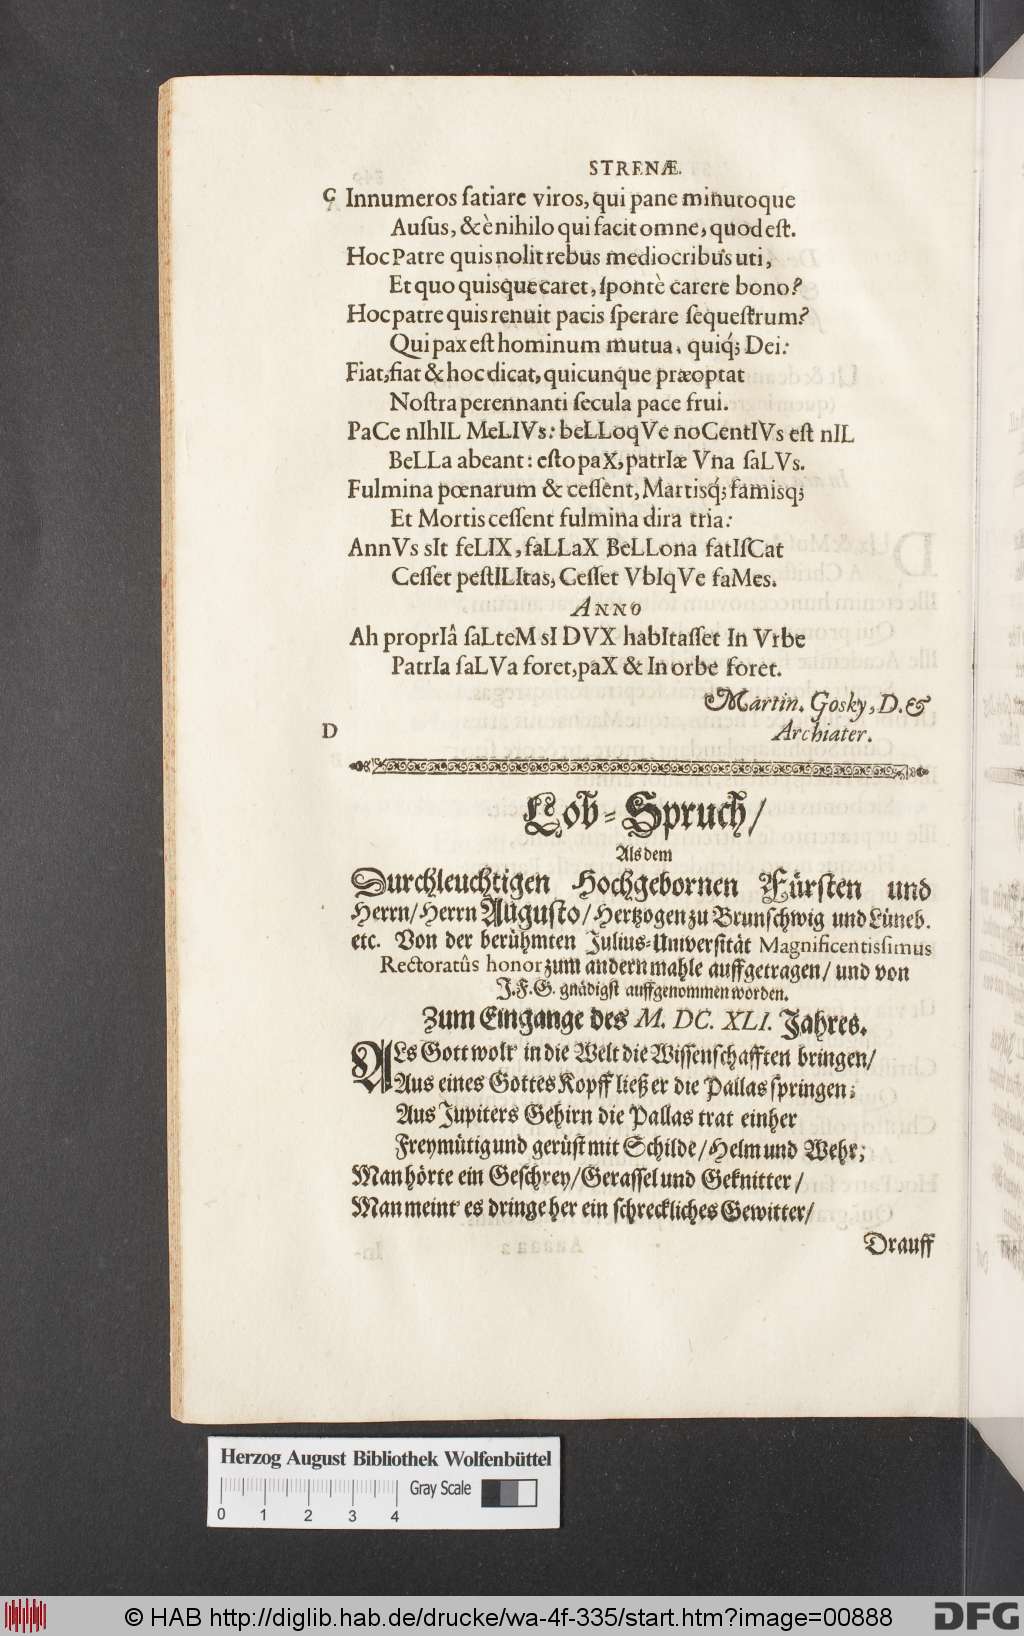 STRENÆ.
C Innumeros ſatiare viros, qui pane minutoque
Auſus, & è nihilo qui facit omne, quod eſt.
Hoc Patre quis nolit rebus mediocribus uti,
Et quo quisque caret, ſpontè carere bono?
Hoc patre quis renuit pacis ſperare ſequeſtrum?
Qui pax eſt hominum mutua, quiq́; Dei:
Fiat, fiat & hoc dicat, quicunque præoptat
Noſtra perennanti ſecula pace frui.
PaCe nIhIL MeLIVs: beLLoqVe noCentIVs eſt nIL
BeLLa abeant: eſto paX, patrIæ Vna ſaLVs.
Fulmina pœnarum & ceſſent, Martisq́; famisq;
Et Mortis ceſſent fulmina dira tria:
AnnVs sIt feLIX, faLLaX BeLLona fatIſCat
Ceſſet peſtILItas, Ceſſet VbIqVe faMes.
ANNO
Ah proprIâ ſaLteM sI DVX habItaſſet In Vrbe
PatrIa ſaLVa foret, paX & In orbe foret.
Martin. Gosky, D. &
D Archiater.
Lob-Spruch/
Als dem
Durchleuchtigen Hochgebornen Fürſten und
Herrn/ Herrn Auguſto/ Hertzogen zu Brunſchwig und Lüneb.
etc. Von der berühmten Julius-Univerſität Magnificentiſſimus
Rectoratûs honor zum andern mahle auffgetragen/ und von
J. F. G. gnädigſt auffgenommen worden.
Zum Eingange des M. DC. XLI. Jahres.
ALs Gott wolt' in die Welt die Wiſſenſchafften bringen/
Aus eines Gottes Kopff ließ er die Pallas ſpringen;
Aus Jupiters Gehirn die Pallas trat einher
Freymütig und gerüſt mit Schilde/ Helm und Wehr;
Man hörte ein Geſchrey/ Geraſſel und Geknitter/
Man meint' es dringe her ein ſchreckliches Gewitter/
Drauff
Herzog August Bibliothek Wolfenbüttel
Gray Scale
0 1 2 3 4
© HAB http://diglib.hab.de/drucke/wa-4f-335/start.htm?image=00888
DFG